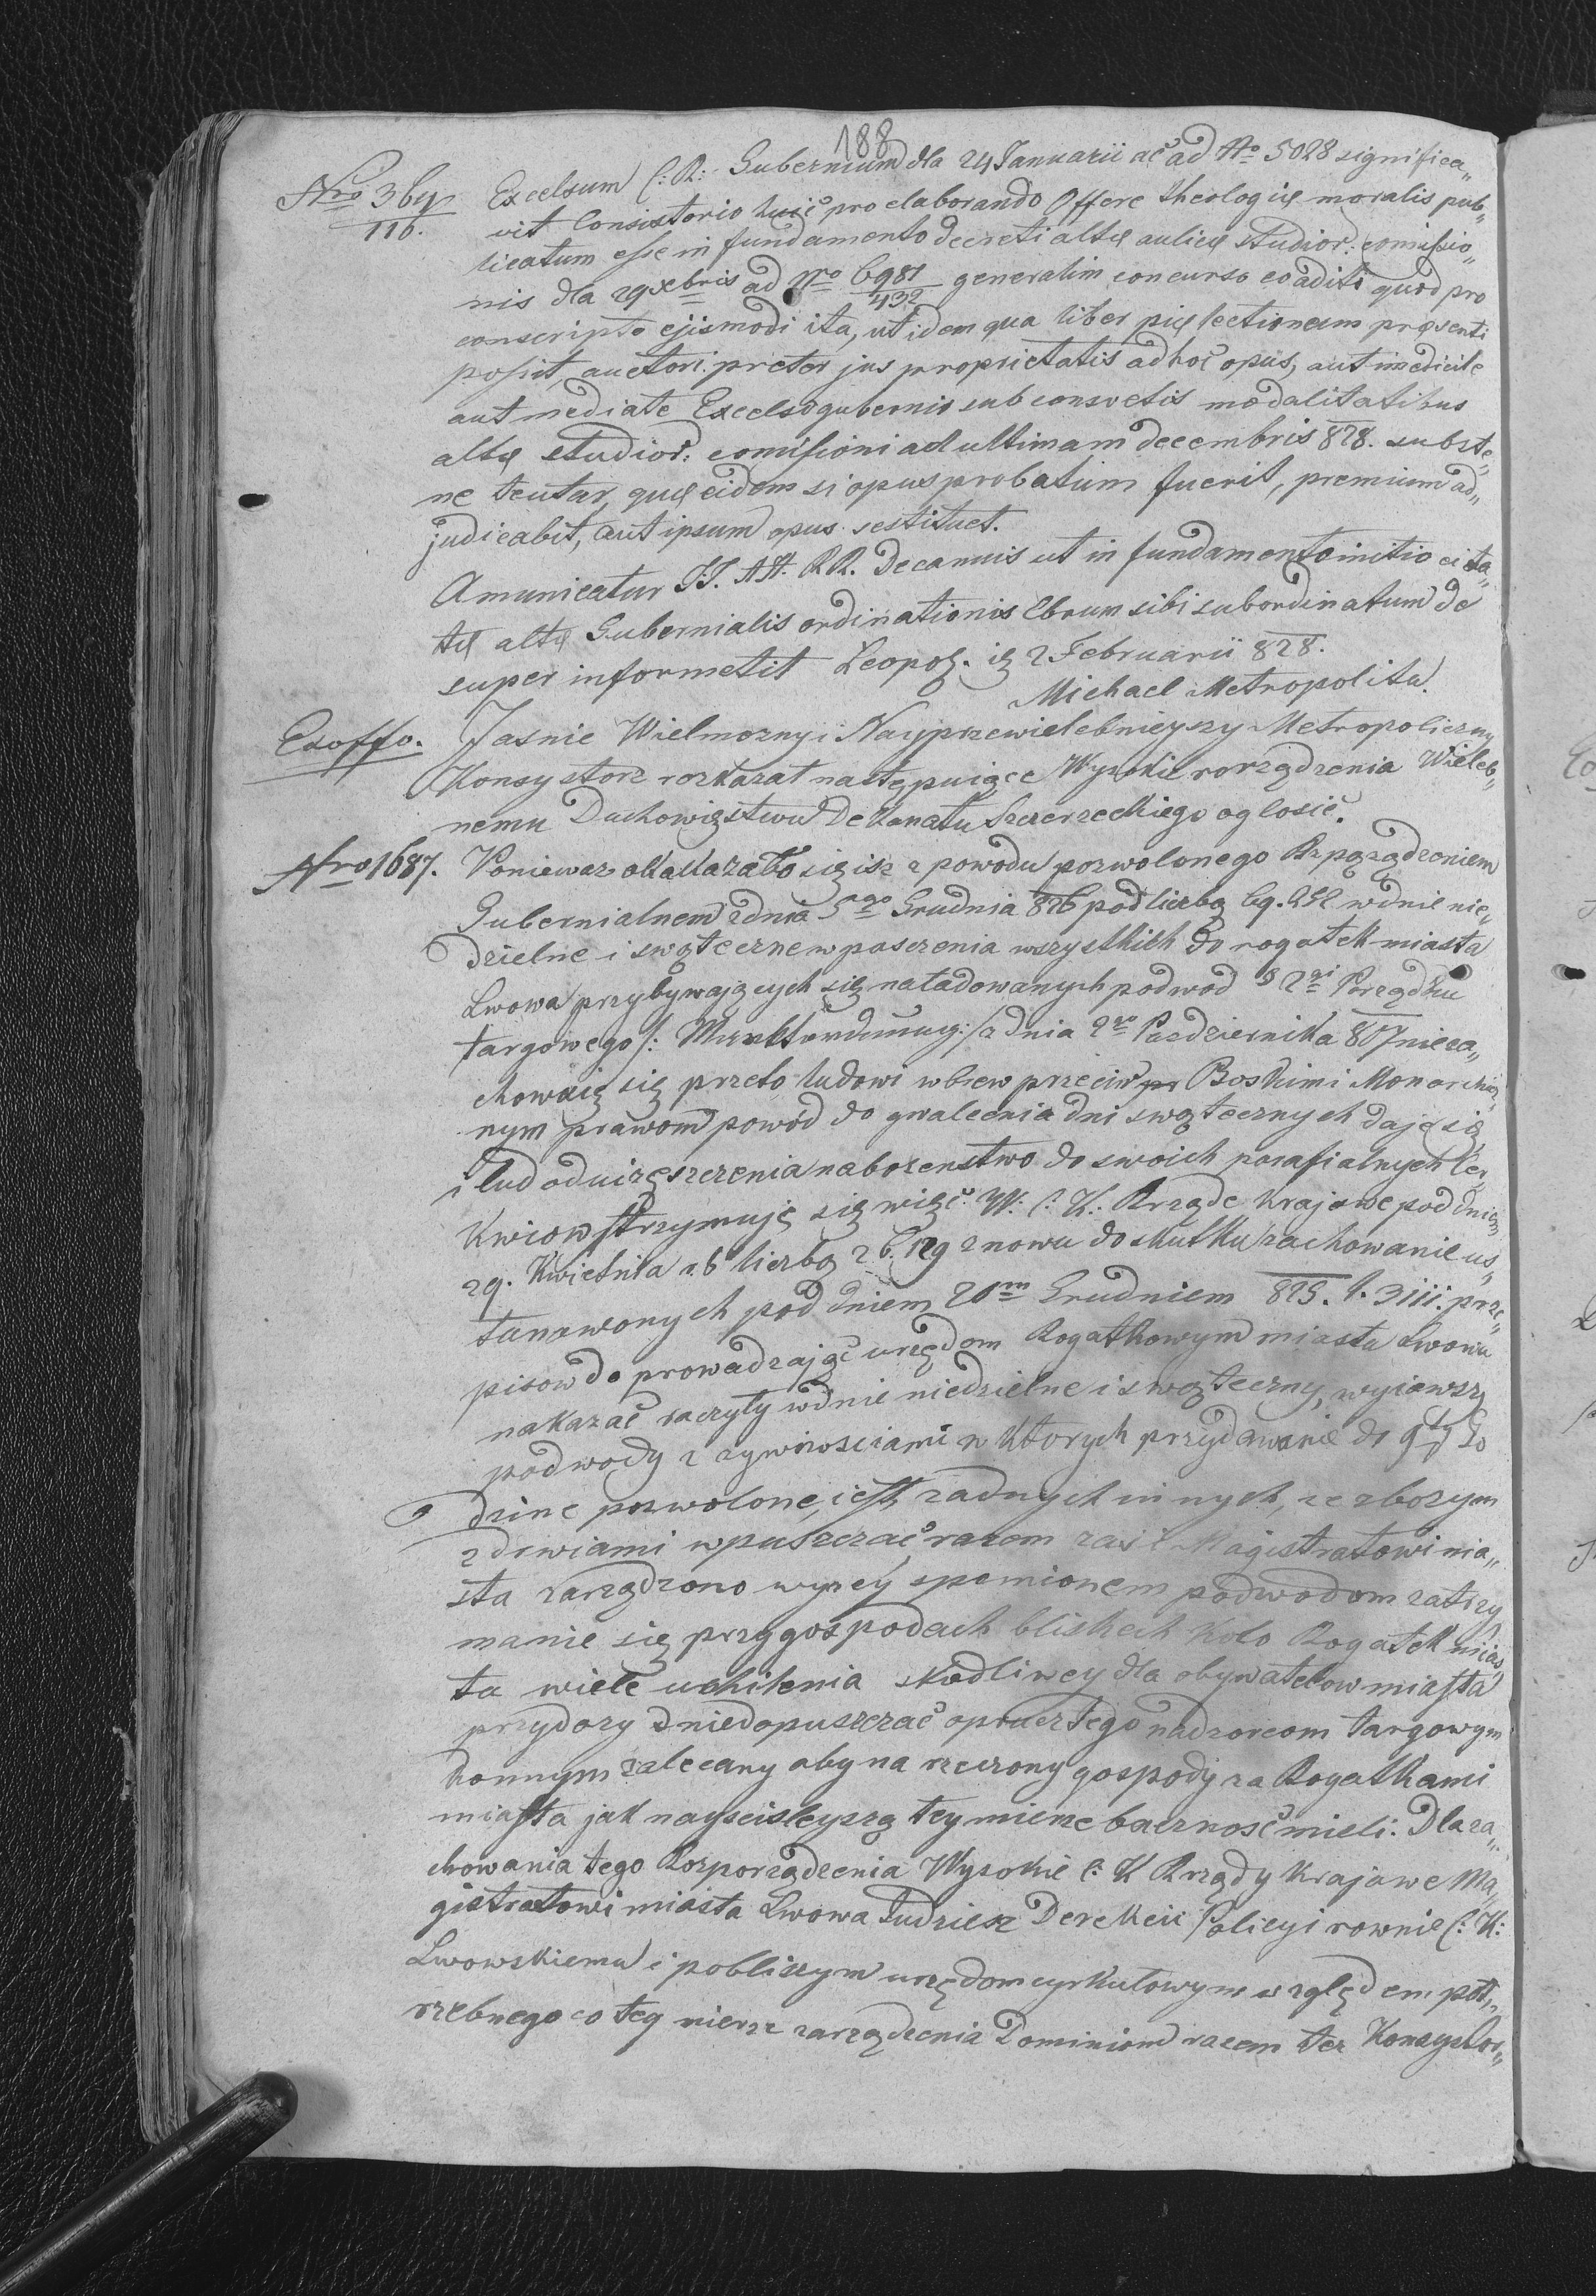 188
Nro 369
116.
Excelsum C: R: Gubernium dla 24 Januarii ac ad No 5028 significa„
vit Consistorio huic pro elaborando Offere theologię moralis pub„
licatum esse in fundamento decreti altę aulicę studior: comissio„
nis dla 29 xbris ad Nro 6981/432 generalim concurso eo aditi quod pro
conscripto ejismodi ita, ut idem qua liber pię lectionem pręsenti
possit, auctori preter jus proprietatis ad hoc opus, aut imedicite
aut mediate Excelso gubernio sub consvetis modalitatibus
altę studior: comissioni ad ultimam decembris 828. subste„
ne teutar, quę eidem si opus probatum fuerit, premium ad„
judicabit, aut ipsum opus restituet.
Amunicatur J.J. AA. RR. Decannis ut in fundamento initio cita„
tę altę Gubernialis ordinationis Clrum sibi subordinatum de
super informetit Leopol. ię 2 Februarii 828.
Michael Metropolita.
Exoffo. Jasnie Wielmozny i Nayprzewielebnieyszy Metropoliczny
Konsystorz rozkazat następuiące Wysokie rorządzenia Wieleb„
nemu Duchowięstwu Dekanatu Szczerzeckiego oglosić.
Nro 1687. Poniewaz okakazało się isz z powodu pozwolonego Rzpąządzeniem
Gubernialnem zdnia 5go Grudnia 826 pod liczbą wdnie nie„
dzielne i swąteczne wpasczenia wszystkich do rogatek miasta
Lwowa przybywających się natadowanych podwod § 2gi Porządku
targowego /: :/ z dnia 2go Pazdziernika 807 nieza„
chowuię się przeto ludowi wbrew przeciw pr Boskimi Monarchicz„
nym prawom powód do gwalcenia dni swątecznych daję się
i lud od uczęszczenia nabozenstwo do swoich parafialnych Cer„
kwiow strzymuję się więc W: C: K: Rrząde krajowe pod dniem
29. Kwietnia r.b liczbą znowu do skutku zachowanie us„
tanowonych pod dniem 20m Grudniem 825. l. 3111. prze„
pisow do prowadzając urzędom Rogatkowym miasta Lwowa
nakazać raczyły wdnie niedzielne i swąteczny, wyiąwszy
podwody z zywnosciami w ktorych przydawanie do 9tey Go
dzine pozwolone, iest zadnych innych, ze zbozym
z drwiami wpuszczać razom zaś Magistratowi mia„
sta zarządzono wyzey spomionem podwodom zatrzy„
manie się przy gospodach bliskich kolo Rogatek mias„
ta wiele uchilenia skodliwey dla obywatelow miasta
przydozy niedopuszczać oprucz tego nadzorcom targowym
konnym zalecany aby na rzeczony gospody za Rogatkami
miasta jak nayscisleyszą tey mierze bacznosć mieli. Dla za„
chowania tego Rozporządzenia Wysokie C: K Rrządy krajowe Ma„
gistratowi miasta Lwowa tudziesz Derekcii Policyi rownie C: K:
Lwowskiemu i pobliszym urzędom cyrkulowym względem pot„
rzebnego co tey mierze zarządzenia Dominiom razem tez Konsystor„